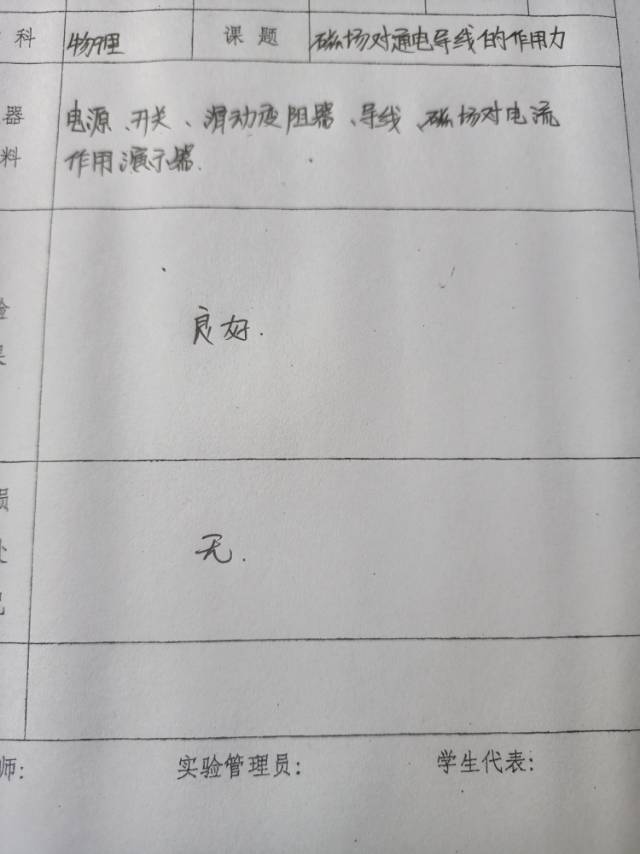 科 物理 课题 磁场对通电导线的作用力
器 电源、开关、滑动变阻器、导线、磁场对电流
料 作用演示器.
验
果 良好.
损
处 无.
况
师: 实验管理员: 学生代表: